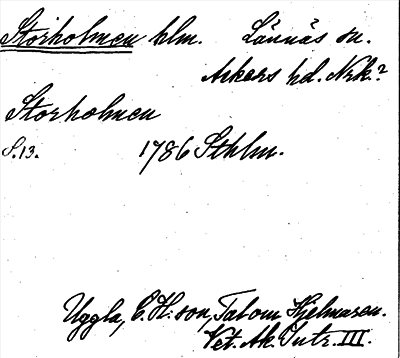 Storholmen hlm. Lännäs sn.
Askers hd. Nrk.?
Storholmen
S. 13. 1786 Sthlm.
Uggla, C. H:son, Tal om Hjelmaren.
Vet. Ak. Intr. III.